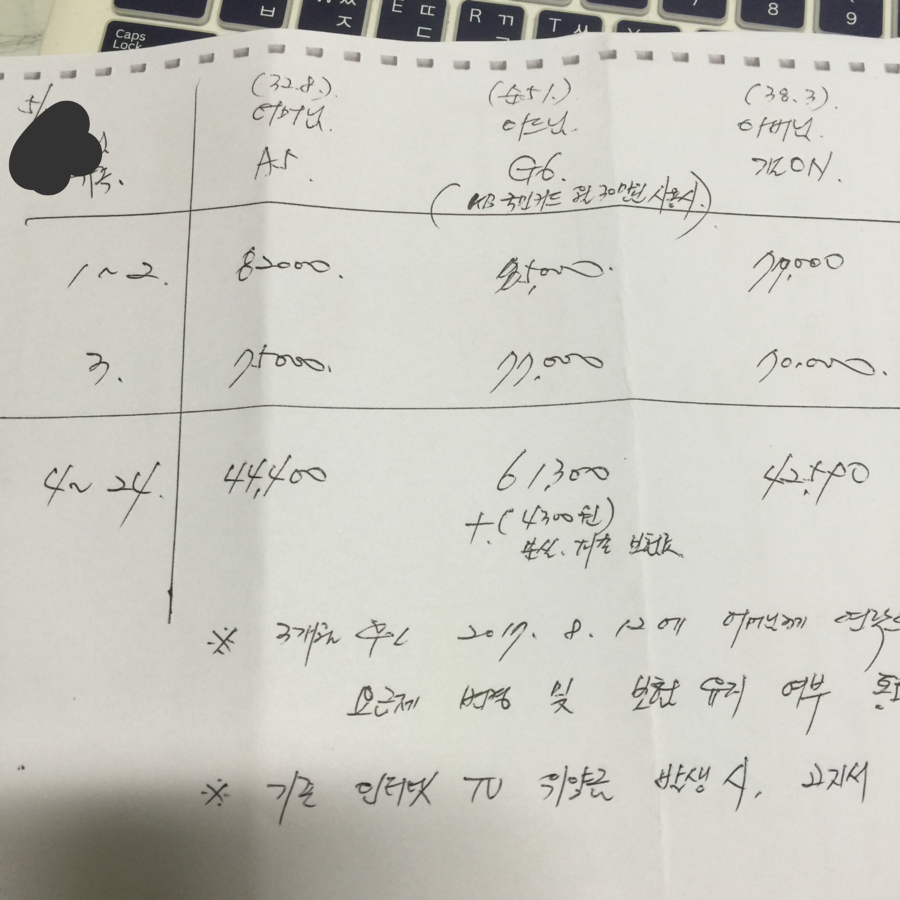 Caps Lock ㅂ ㅉ ㅈ E ㄸ ㄷ R ㄲ ㄱ T 8 9
5/
(32.8.) (551.) (38.3).
어머님 아드님. 아버님.
A5. G6. 기본ON.
(KB 국민카드 월 30만원 사용시.)
1~2. 82000. 85,000. 79,000
3. 75000. 77,000 70,000.
4~24. 44,400 61,300 42,540
+(4300원)
분실. 파손 보험료.
※ 3개월 후인 2017. 8. 12에 어머님께
요금제 변경 및 보험 유지 여부
※ 기존 인터넷 TV 위약금 발생 시, 고지서